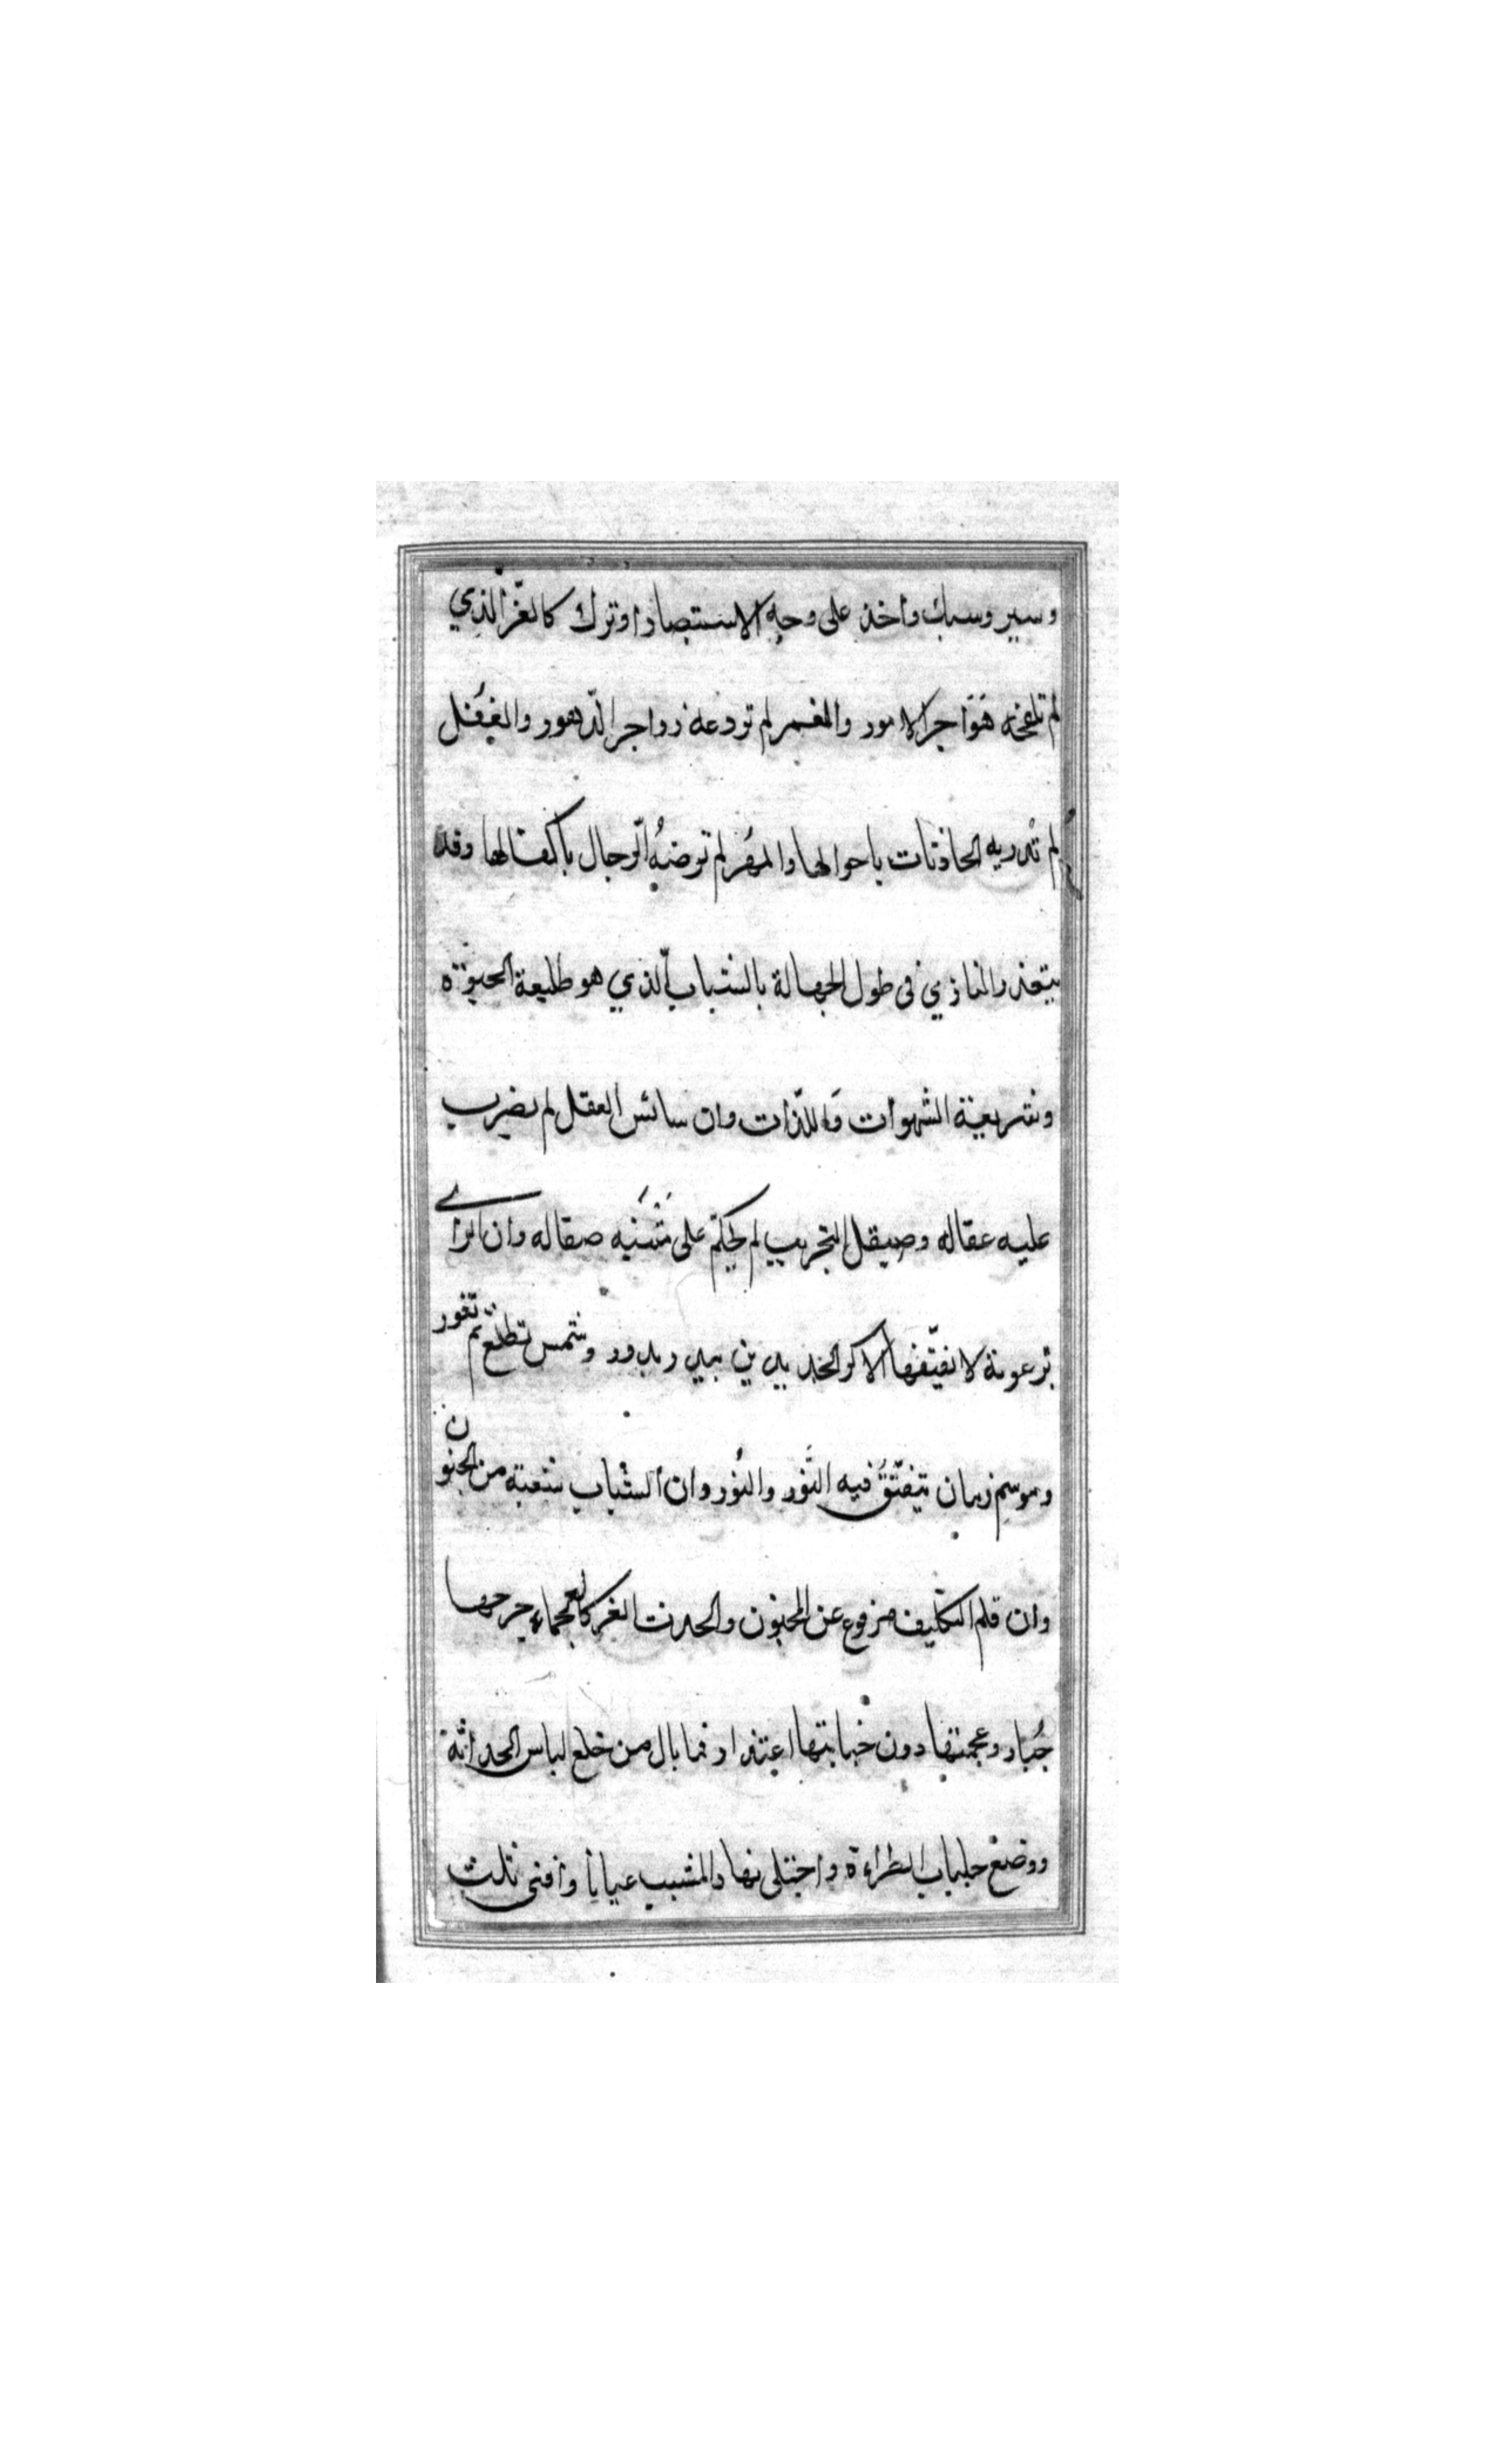 وسير وسبك واخذ على وجه الاستبصار او ترك كالغرّ الّذي
لم تلفحه هَوَاجر الامور والغمر لم تودعه زواجر الدّهور والغفل
لم تدريه الحادثات باحوالها والمهر لم توضهُ الرّجال باكفالها وقد
يتعذر المنازي فى طول الجهالة بالشباب الّذي هو طليعة الحيوٰة
وشريعة الشهوات وَاللذّات وان سائس العقل لم يضرب
عليه عقاله وصيقل التجريب لم يحكم على مَتنَيه صقاله وان الرأي
برعونة لا يفيّفها الاكر الجديدين يبيد ويدور وشمس تطلع ثم تغور
وموسم زمان يتفتّق فيه النَّور والنُور وان الشباب شعبة من الجنون
وان قلم التكليف مرفوع عن المجنون والحدث الغر كالعجماء جرحها
جُبار وعجمتها دون خبايتها اعتذار فما بال من خلع لباس الحداثة
ووضع جلباب الطراءة واجتلى نهار المشيب عيانا وافنى ثلث